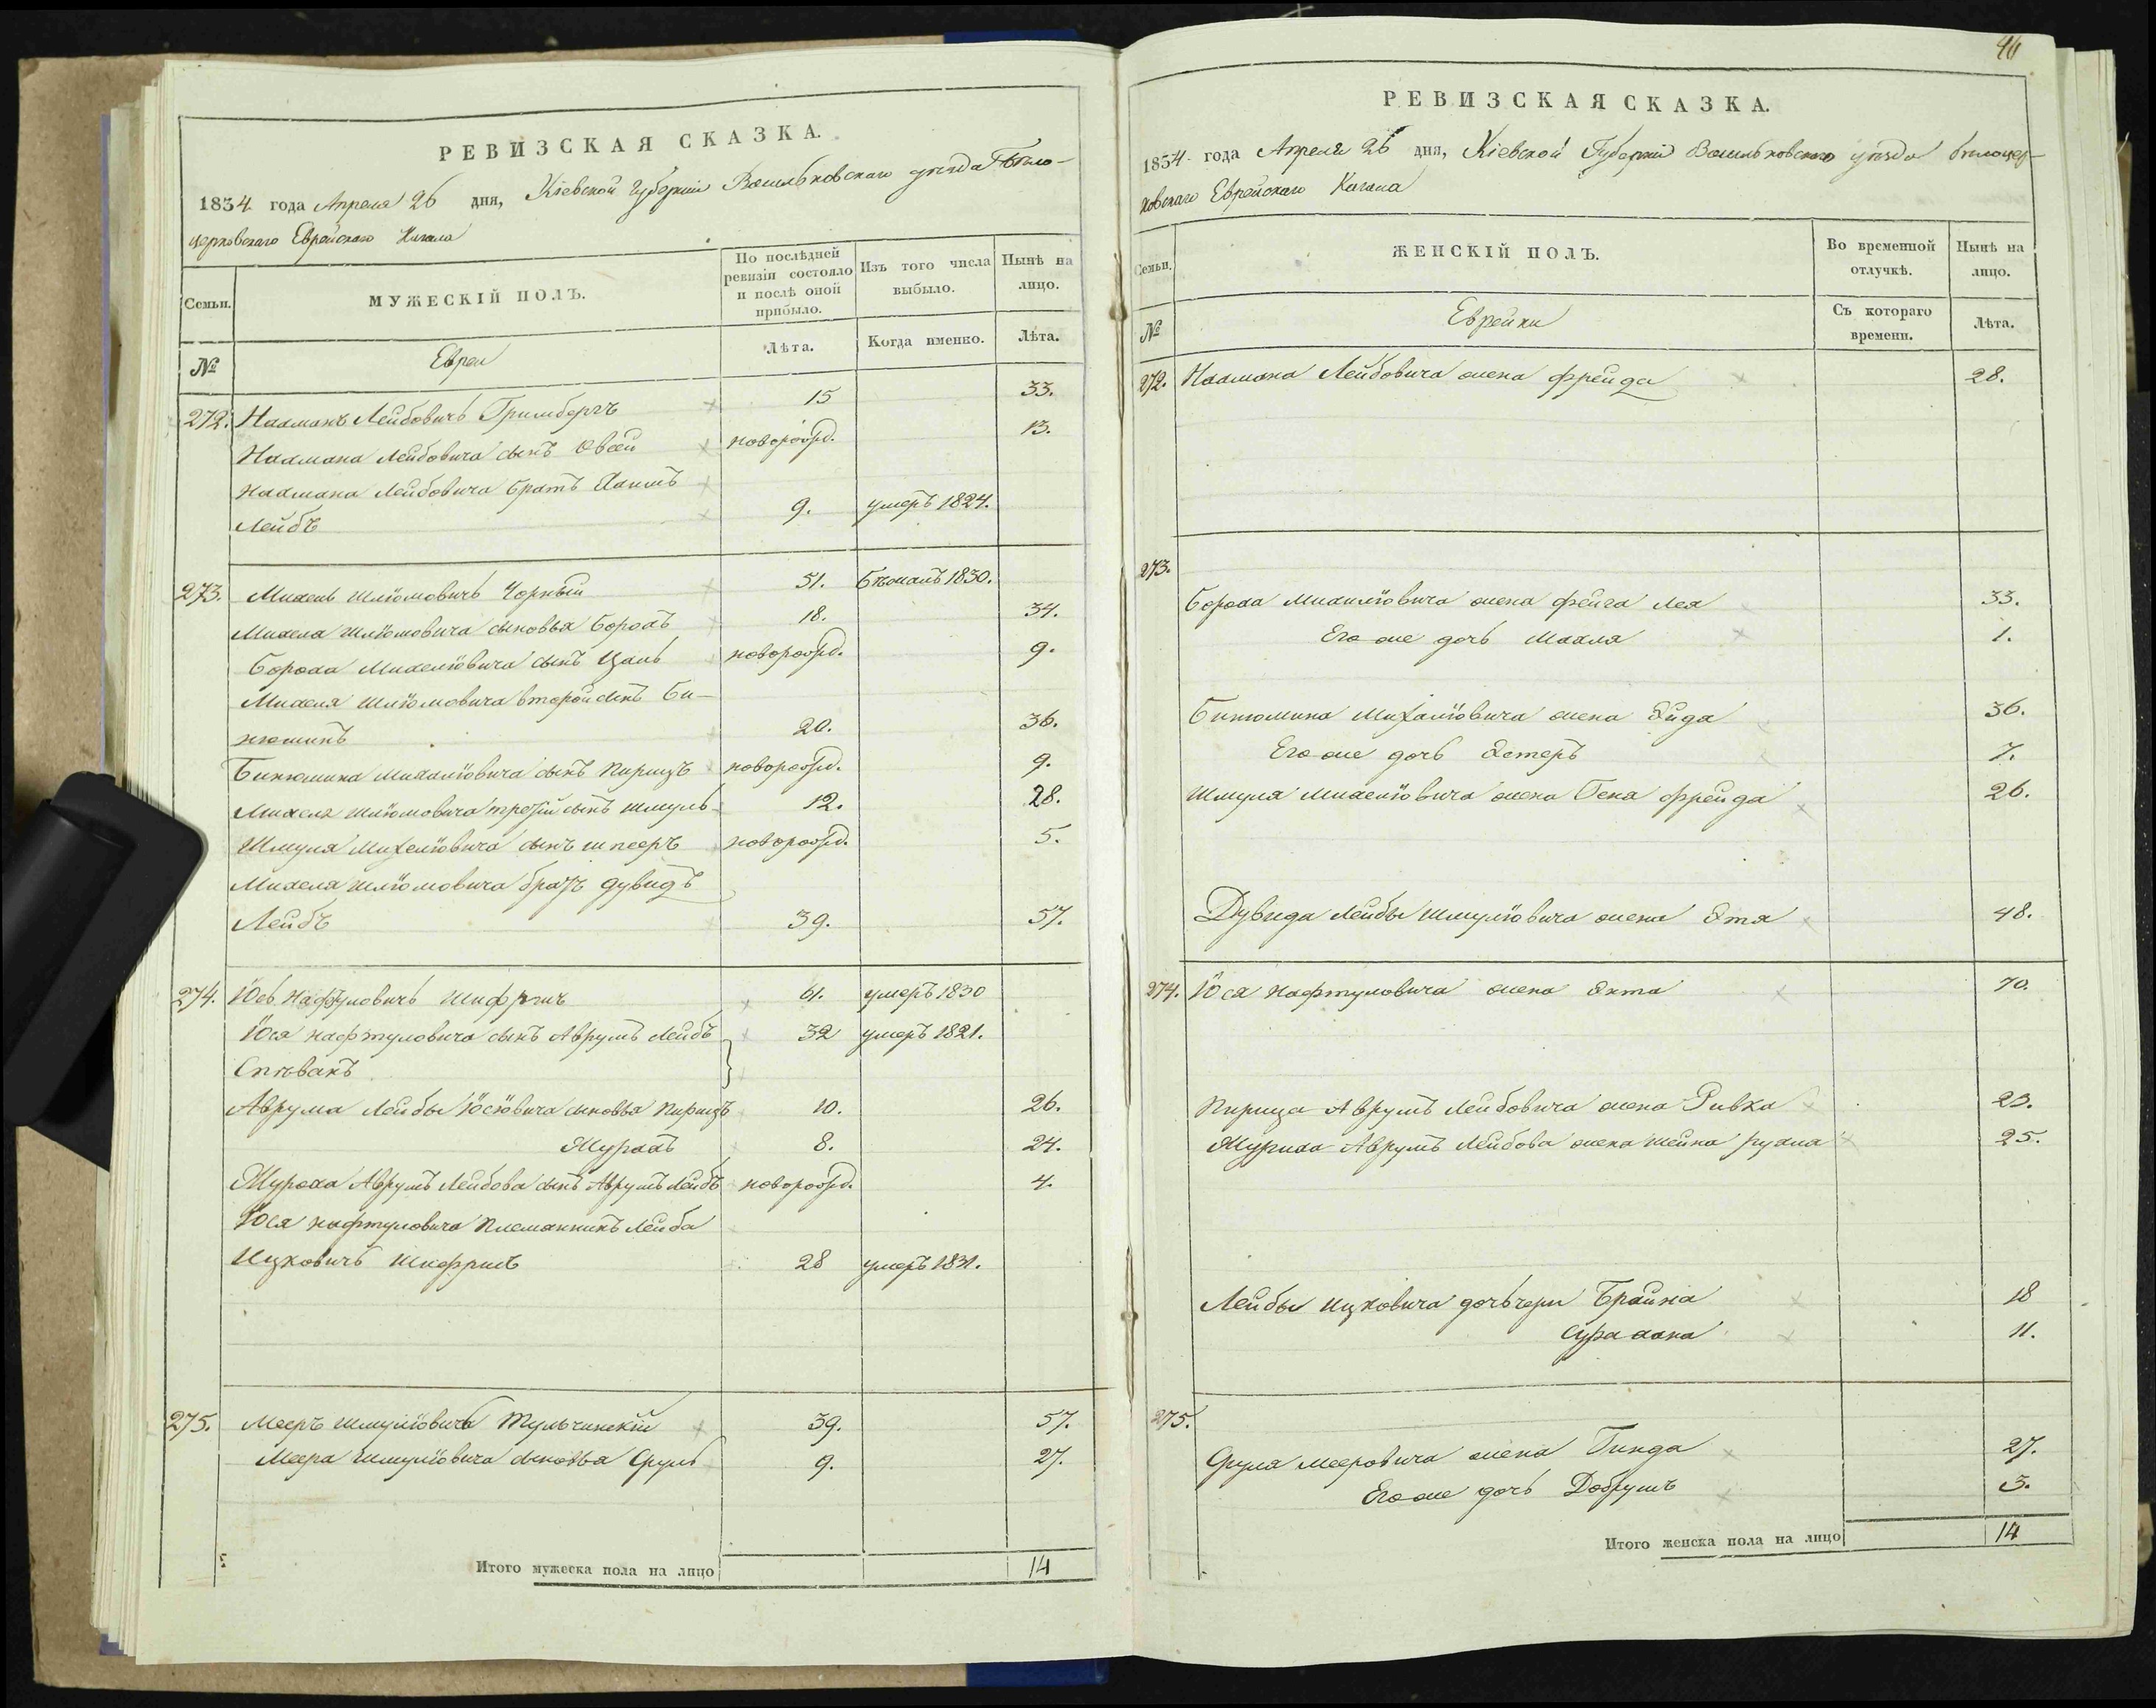 РЕВИЗСКАЯ СКАЗКА.
1834 года Апреля 26 дня, Кіевской Губерніи Васильковскаго уѣзда Бѣло-
церковскаго Еврейскаго Кагала
Семьи.
МУЖЕСКІЙ ПОЛЪ.
По послѣдней
ревизіи состояло
и послѣ оной
прибыло.
Изъ того числа
выбыло.
Нынѣ на
лицо.
№
Евреи
Лѣта.
Когда именно.
Лѣта.
272. Нахманъ Лейбовичь Гримбергъ 15 33.
Нахмана Лейбовича сынъ 13.
Нахмана Лейбовича братъ Хаимъ
Лейбъ 9. умеръ 1824.
273. Михель Шліомовичь Чорный 51. Бѣжалъ 1830.
Михеля Шліомовича сыновья Борохъ 18. 34.
Бороха Михеліовича сынъ новорожд. 9.
Михеля Шліомовича второй сынъ Би-
нюминъ 20. 36.
Бинюмина Михаліовича сынъ Пирицъ новорожд. 9.
Михеля Шліомовича третій сынъ Шмуль 12. 28.
Шмуля Михеліовича сынъ новорожд. 5.
Михеля Шліомовича братъ Дувидъ
Лейбъ 39. 57.
274. Іось Нафтуловичь 61. умеръ 1830
Іося Нафтуловича сынъ Аврумъ Лейбъ 32 умеръ 1821.
Спѣвакъ
Аврума Лейбы Іосіовича сыновья Пирицъ 10. 26.
8. 24.
Аврумъ Лейбова сынъ Аврумъ Лейбъ новорожд. 4.
Іося Нафтуловича племянникъ Лейба
Ицковичь Шифринъ 28 умеръ 1831.
275. Мееръ Шмуліовичь Тульчинскій 39. 57.
Меера Шмуліовича сыновья Сруль 9. 27.
Итого мужеска пола на лицо 14
46
РЕВИЗСКАЯ СКАЗКА.
1834 года Апреля 26 дня, Кіевской Губерніи Васильковскаго уѣзда бѣлоцер-
ковскаго Еврейскаго Кагала
Семьи.
ЖЕНСКІЙ ПОЛЪ.
Во временной
отлучкѣ.
Нынѣ на
лицо.
№
Еврейки
Съ котораго
времени.
Лѣта.
272. Нахмана Лейбовича жена Фрейда 28.
273.
Бороха Михиліовича жена Фейга Лея 33.
Его же дочь Махля 1.
Бинюмина Михаліовича жена 36.
Его же дочь Эстеръ 7.
Шмуля Михеліовича жена Гена Фрейда 26.
Дувида Лейбы Шмуліовича жена Этя 48.
274. Іося Нафтуловича жена 70.
Пирица Аврумъ Лейбовича жена Ривка 23.
Аврумъ Лейбова жена Шейна Рухля 25.
Лейбы Ицковича дочьтери Брайна 18
Сура Хана 11.
275.
Сруля Мееровича жена Гинда 27.
Его же дочь Добрушъ 3.
Итого женска пола на лицо 14